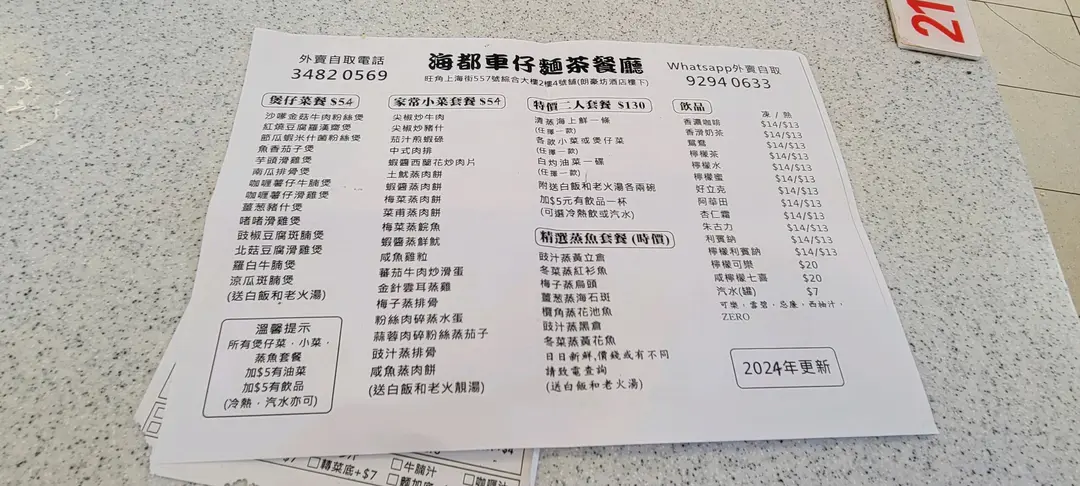 外賣自取電話
3482 0569
海都車仔麵茶餐廳
旺角上海街557號綜合大樓2樓4號舖(朗豪坊酒店樓下)
Whatsapp外賣自取
9294 0633
21
煲仔菜餐 $54
沙嗲金菇牛肉粉絲煲
紅燒豆腐羅漢齋煲
節瓜蝦米什菌粉絲煲
魚香茄子煲
芋頭滑雞煲
南瓜排骨煲
咖喱薯仔牛腩煲
咖喱薯仔滑雞煲
薑葱豬什煲
啫啫滑雞煲
豉椒豆腐斑腩煲
北菇豆腐滑雞煲
羅白牛腩煲
涼瓜斑腩煲
(送白飯和老火湯)
溫馨提示
所有煲仔菜，小菜，
蒸魚套餐
加$5有油菜
加$5有飲品
(冷熱，汽水亦可)
家常小菜套餐 $54
尖椒炒牛肉
尖椒炒豬什
茄汁煎蝦碌
中式肉排
蝦醬西蘭花炒肉片
土魷蒸肉餅
蝦醬蒸肉餅
梅菜蒸肉餅
菜甫蒸肉餅
梅菜蒸鯇魚
蝦醬蒸鮮魷
咸魚雞粒
蕃茄牛肉炒滑蛋
金針雲耳蒸雞
梅子蒸排骨
粉絲肉碎蒸水蛋
蒜蓉肉碎粉絲蒸茄子
豉汁蒸排骨
咸魚蒸肉餅
(送白飯和老火靚湯)
特價二人套餐 $130
清蒸海上鮮一條
(任擇一款)
各款小菜或煲仔菜
(任擇一款)
白灼油菜一碟
(任擇一款)
附送白飯和老火湯各兩碗
加$5元有飲品一杯
(可選冷熱飲或汽水)
精選蒸魚套餐 (時價)
豉汁蒸黃立倉
冬菜蒸紅衫魚
梅子蒸烏頭
薑葱蒸海石斑
欖角蒸花池魚
豉汁蒸黑倉
冬菜蒸黃花魚
日日新鮮,價錢或有不同
請致電查詢
(送白飯和老火湯)
飲品
凍 / 熱
香濃咖啡 $14/$13
香滑奶茶 $14/$13
鴛鴦 $14/$13
檸檬茶 $14/$13
檸檬水 $14/$13
檸檬蜜 $14/$13
好立克 $14/$13
阿華田 $14/$13
杏仁霜 $14/$13
朱古力 $14/$13
利賓納 $14/$13
檸檬利賓納 $14/$13
檸檬可樂 $20
咸檸檬七喜 $20
汽水(罐) $7
可樂，雪碧，忌廉，西柚汁，
ZERO
2024年更新
轉菜底+$7
牛腩汁